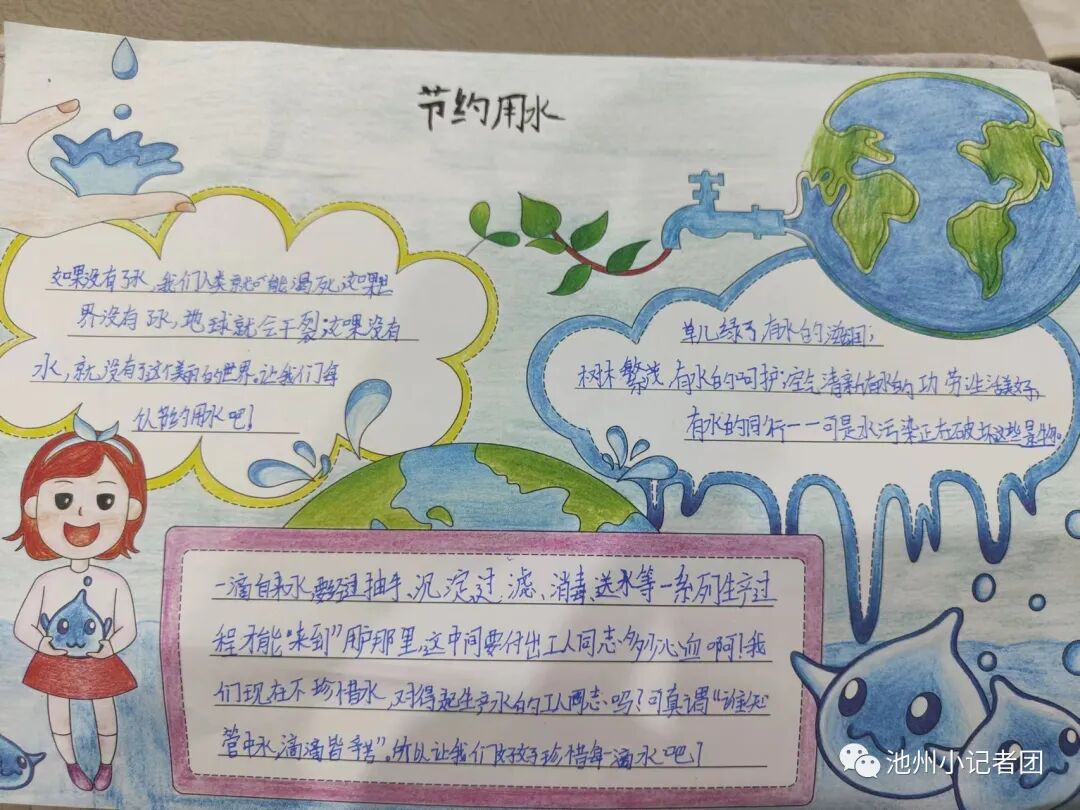 节约用水
如果没有了水,我们人类就可能渴死,这颗世
界没有了水,地球就会干裂;这颗没有
水,就没有了这个美丽的世界。让我们每
从节约用水吧!
草儿绿了有水的滋润;
树木繁茂,有水的呵护;空气清新有水的功劳;生活美好,
有水的同行——可是水污染正在破坏这些景物。
一滴自来水要经过抽手、沉淀、过滤、消毒、送水等一系列生产过
程才能"来到"用户那里,这中间要付出工人同志多少心血啊!我
们现在不珍惜水,对得起生产水的工人同志吗?可真谓"谁知
管中水,滴滴皆辛苦"。所以让我们好好珍惜每一滴水吧!
池州小记者团